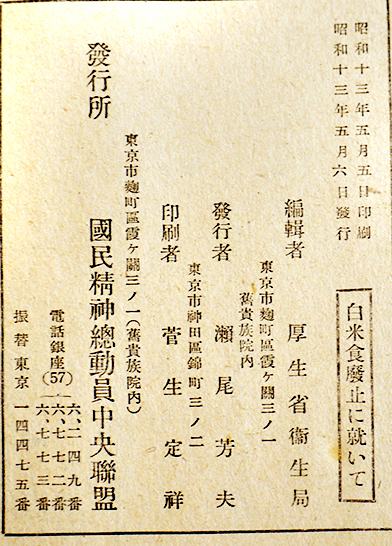 昭和十三年五月五日印刷
昭和十三年五月六日發行
白米食廢止に就いて
編輯者 厚生省衞生局
東京市麴町區霞ケ關三ノ一
舊貴族院內
發行者 瀨尾芳夫
東京市神田區錦町三ノ二
印刷者 菅生定祥
東京市麴町區霞ケ關三ノ一(舊貴族院內)
發行所 國民精神總動員中央聯盟
電話銀座(57)
六、二四九番
六、七七二番
六、七七三番
振替東京一四四七五番